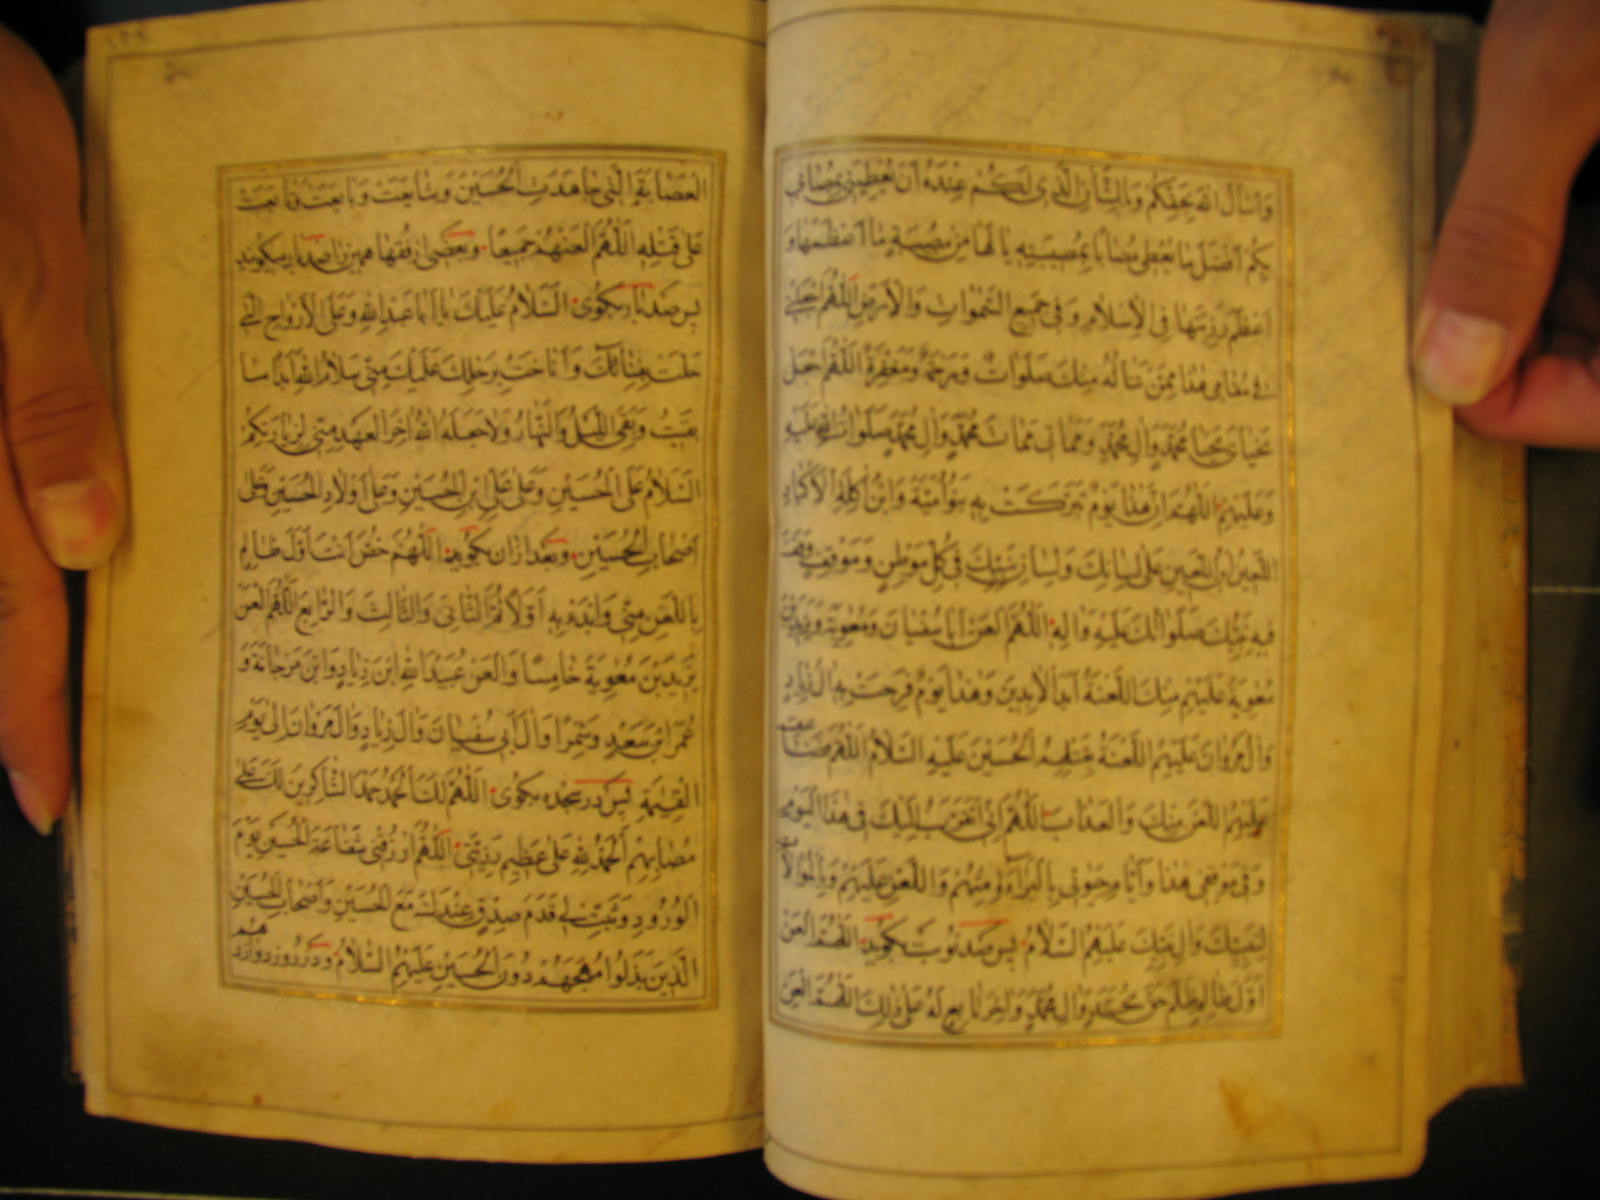 وَاَسْأَلُ اللّٰهَ بِحَقِّكُم وَبِالشَّأنِ الَّذى لَكُمْ عِنْدَهُ اَنْ يُعْطِيَنى بِمُصابى
بِكُم اَفْضَلَ ما يُعْطى مُصابًا بِمُصيبَتِهِ يا لَها مِنْ مُصيبَةٍ ما اَعْظَمَها وَ
اَعْظَمَ رَزِيَّتَها فِى الْاِسْلامِ وَفى جَميعِ السَّمٰواتِ وَالْاَرْضِ اَللّٰهُمَّ اجْعَلْنى
فى مَقامى هٰذا مِمَّنْ تَنالُهُ مِنْكَ صَلَواتٌ وَرَحْمَةٌ وَمَغْفِرَةٌ اَللّٰهُمَّ اجْعَلْ
مَحْياىَ مَحْيا مُحَمَّدٍ وَالِ مُحَمَّدٍ وَمَماتى مَماتَ مُحَمَّدٍ وَالِ مُحَمَّدٍ صَلَواتُكَ عَلَيْهِ
وَعَلَيْهِمْ اَللّٰهُمَّ اِنَّ هٰذا يَوْمٌ تَبَرَّكَتْ بِهِ بَنُو اُمَيَّةَ وَابْنُ اكِلَةِ الْاَكْبادِ
اللَّعينُ بْنُ اللَّعينِ عَلى لِسانِكَ وَلِسانِ نَبِيِّكَ فى كُلِّ مَوْطِنٍ وَمَوْقِفٍ وَقَفَ
فيهِ نَبِيُّكَ صَلَواتُكَ عَلَيْهِ وَالِهِ اَللّٰهُمَّ الْعَنْ اَبا سُفْيانَ وَمُعٰوِيَةَ وَيَزيدَ بْنَ
مُعٰوِيَةَ عَلَيْهِمْ مِنْكَ اللَّعْنَةُ اَبَدَ الْابِدينَ وَهٰذا يَوْمٌ فَرِحَتْ بِهِ الُ زِيادٍ
وَالُ مَرْوانَ عَلَيْهِمُ اللَّعْنَةُ بِقَتْلِهِمُ الْحُسَيْنَ عَلَيْهِ السَّلامُ اَللّٰهُمَّ فَضاعِفْ
عَلَيْهِمُ اللَّعْنَ مِنْكَ وَالْعَذابَ اَللّٰهُمَّ اِنّى اَتَقَرَّبُ اِلَيْكَ فى هٰذَا الْيَوْمِ
وَفى مَوْقِفى هٰذا وَاَيّامِ حَيٰوتى بِالْبَراءَةِ مِنْهُمْ وَاللَّعْنِ عَلَيْهِمْ وَبِالْمُوالاتِ
لِنَبِيِّكَ وَالِ نَبِيِّكَ عَلَيْهِمُ السَّلامُ پس صد نوبت بگويد اَللّٰهُمَّ الْعَنْ
اَوَّلَ ظالِمٍ ظَلَمَ حَقَّ مُحَمَّدٍ وَالِ مُحَمَّدٍ وَاخِرَ تابِعٍ لَهُ عَلى ذٰلِكَ اَللّٰهُمَّ الْعَنِ
الْعِصابَةَ الَّتى جاهَدَتِ الْحُسَيْنَ وَشايَعَتْ وَبايَعَتْ وَتابَعَتْ
عَلى قَتْلِهِ اَللّٰهُمَّ الْعَنْهُمْ جَميعًا وبعضى از فقها همين را صد بار ميگويند
پس صد بار بگوى اَلسَّلامُ عَلَيْكَ يا اَبا عَبْدِ اللّٰهِ وَعَلَى الْاَرْواحِ الَّتى
حَلَّتْ بِفِنائِكَ وَاَناخَتْ بِرَحْلِكَ عَلَيْكَ مِنّى سَلامُ اللّٰهِ اَبَدًا ما
بَقيتُ وَبَقِىَ اللَّيْلُ وَالنَّهارُ وَلا جَعَلَهُ اللّٰهُ اخِرَ الْعَهْدِ مِنّى لِزِيارَتِكُمْ
اَلسَّلامُ عَلَى الْحُسَيْنِ وَعَلى عَلِىِّ بْنِ الْحُسَيْنِ وَعَلى اَوْلادِ الْحُسَيْنِ وَعَلى
اَصْحابِ الْحُسَيْنِ وبعد ازان بگويد اَللّٰهُمَّ خُصَّ اَنْتَ اَوَّلَ ظالِمٍ
بِاللَّعْنِ مِنّى وَابْدَءْ بِهِ اَوَّلًا ثُمَّ الثّانِىَ وَالثّالِثَ وَالرّابِعَ اَللّٰهُمَّ الْعَنْ
يَزيدَ بْنَ مُعٰوِيَةَ خامِسًا وَالْعَنْ عُبَيْدَ اللّٰهِ ابْنَ زِيادٍ وَابْنَ مَرْجانَةَ وَ
عُمَرَ ابْنَ سَعْدٍ وَشِمْرًا وَالَ اَبى سُفْيانَ وَالَ زِيادٍ وَالَ مَرْوانَ اِلى يَوْمِ
الْقِيٰمَةِ پس در سجده بگوى اَللّٰهُمَّ لَكَ الْحَمْدُ حَمْدَ الشّاكِرينَ لَكَ عَلى
مُصابِهِمْ اَلْحَمْدُ لِلّٰهِ عَلى عَظيمِ رَزِيَّتى اَللّٰهُمَّ ارْزُقْنى شَفاعَةَ الْحُسَيْنِ يَوْمَ
الْوُرُودِ وَثَبِّتْ لى قَدَمَ صِدْقٍ عِنْدَكَ مَعَ الْحُسَيْنِ وَاَصْحابِ الْحُسَيْنِ
الَّذينَ بَذَلُوا مُهَجَهُمْ دُونَ الْحُسَيْنِ عَلَيْهِمُ السَّلامُ ودر روز دوازدهم